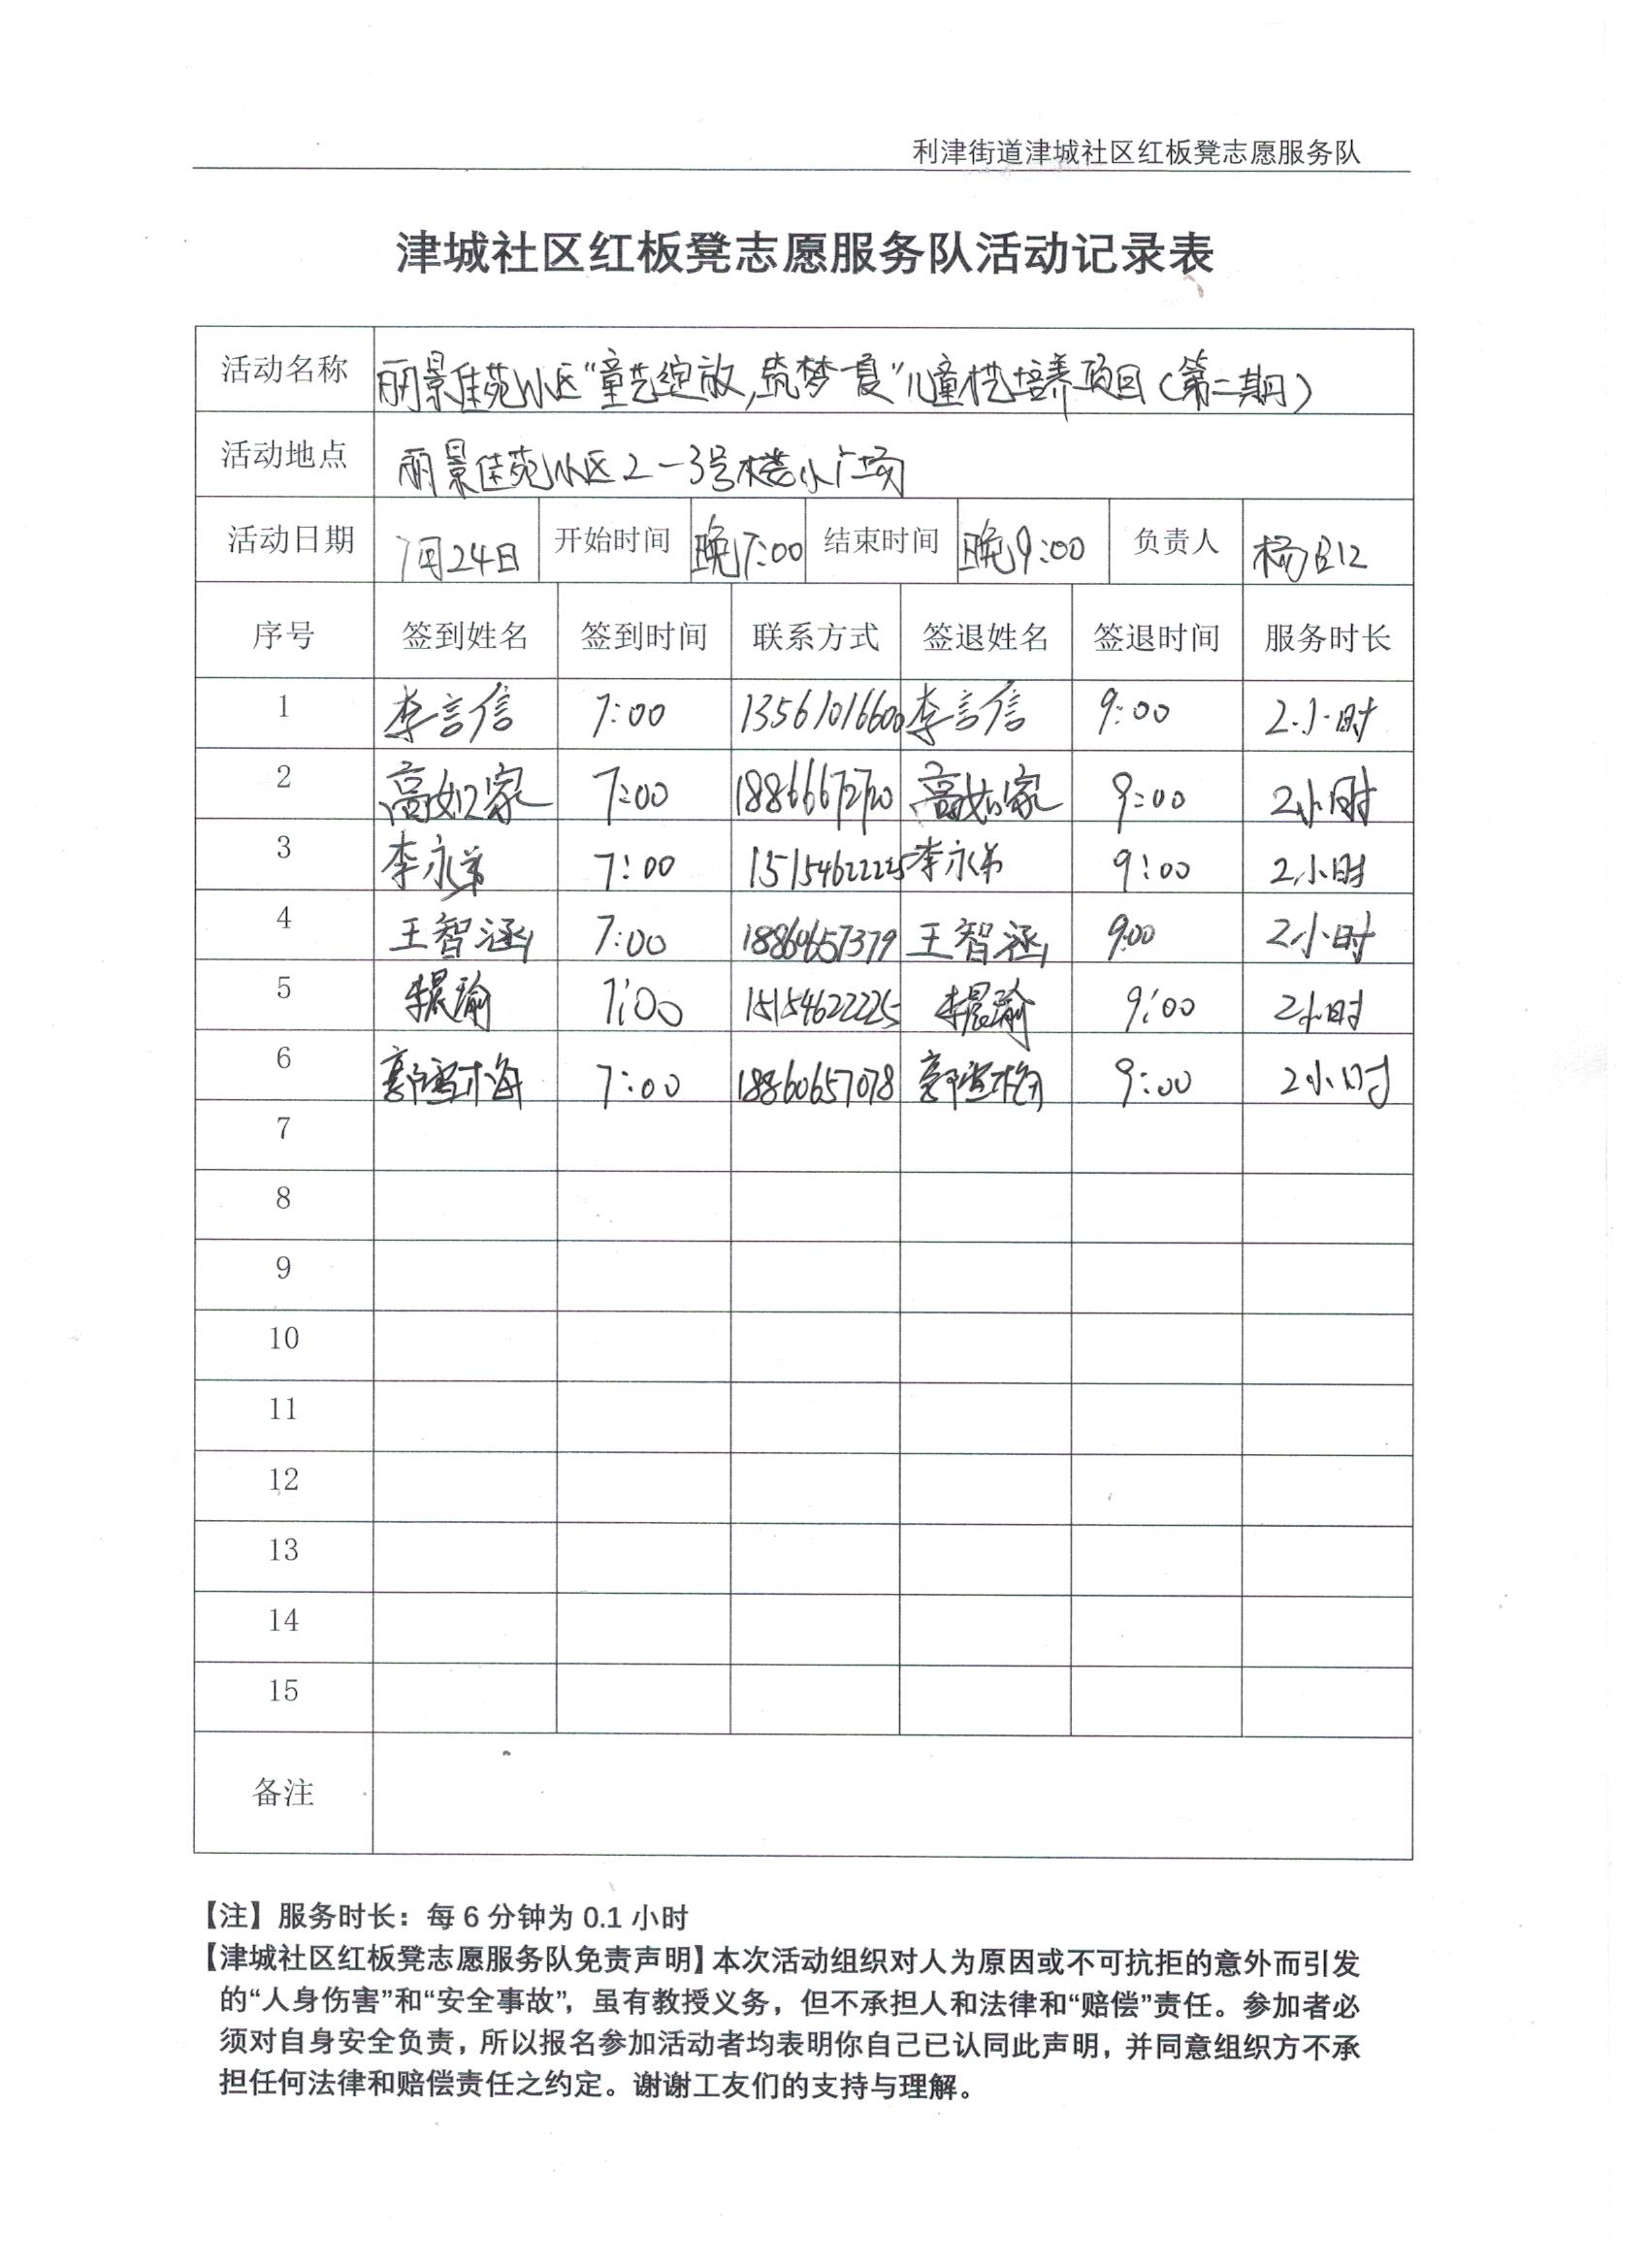 利津街道津城社区红板凳志愿服务队
津城社区红板凳志愿服务队活动记录表
活动名称 丽景佳苑小区“童艺绽放,筑梦一夏”儿童才艺培养项目(第二期)
活动地点 丽景佳苑小区2-3号楼小广场
活动日期 7月24日 开始时间 晚7:00 结束时间 晚9:00 负责人 杨
序号 签到姓名 签到时间 联系方式 签退姓名 签退时间 服务时长
1 李言信 7:00 13561016600 李言信 9:00 2小时
2 高如家 7:00 高如家 9:00 2小时
3 李永弟 7:00 15154622225 李永弟 9:00 2小时
4 王智涵 7:00 18860657379 王智涵 9:00 2小时
5 李晨瑜 7:00 15154622225 李晨瑜 9:00 2小时
6 郭雪梅 7:00 18860657078 郭雪梅 9:00 2小时
7
8
9
10
11
12
13
14
15
备注
【注】服务时长：每 6 分钟为 0.1 小时
【津城社区红板凳志愿服务队免责声明】本次活动组织对人为原因或不可抗拒的意外而引发
的“人身伤害”和“安全事故”，虽有教授义务，但不承担人和法律和“赔偿”责任。参加者必
须对自身安全负责，所以报名参加活动者均表明你自己已认同此声明，并同意组织方不承
担任何法律和赔偿责任之约定。谢谢工友们的支持与理解。